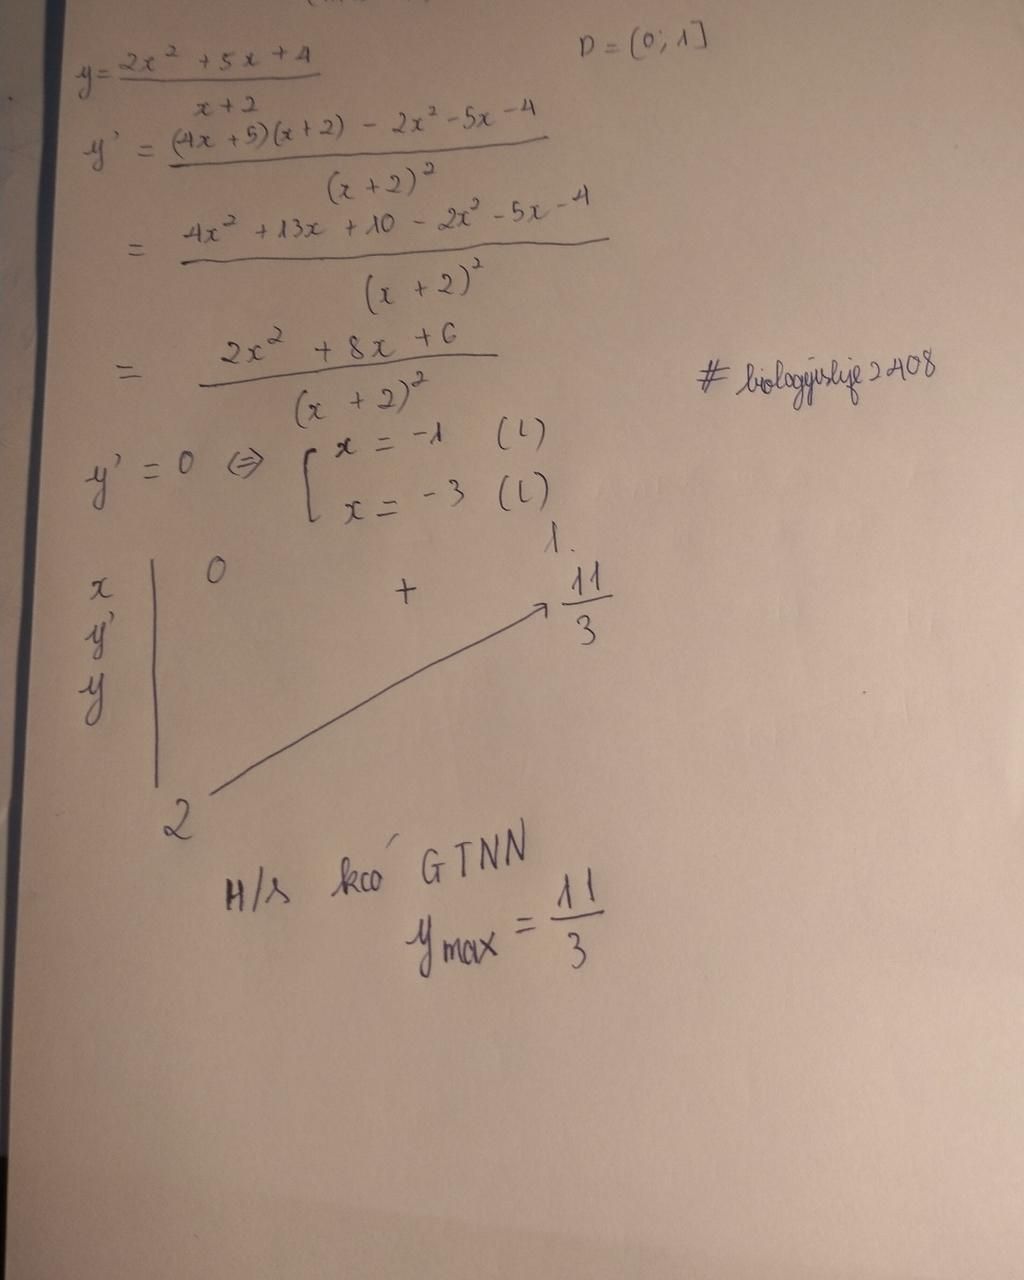 y = (2x² + 5x + 4)/(x + 2) D = (0; 1]
y' = ((4x + 5)(x + 2) - 2x² - 5x - 4)/(x + 2)²
= (4x² + 13x + 10 - 2x² - 5x - 4)/(x + 2)²
= (2x² + 8x + 6)/(x + 2)²
# biologyislife2408
y' = 0 ⇔ [ x = -1 (L)
x = -3 (L)
x | 0 1.
y' | +
y | 2 ↗ 11/3
H/s kcó GTNN
y max = 11/3